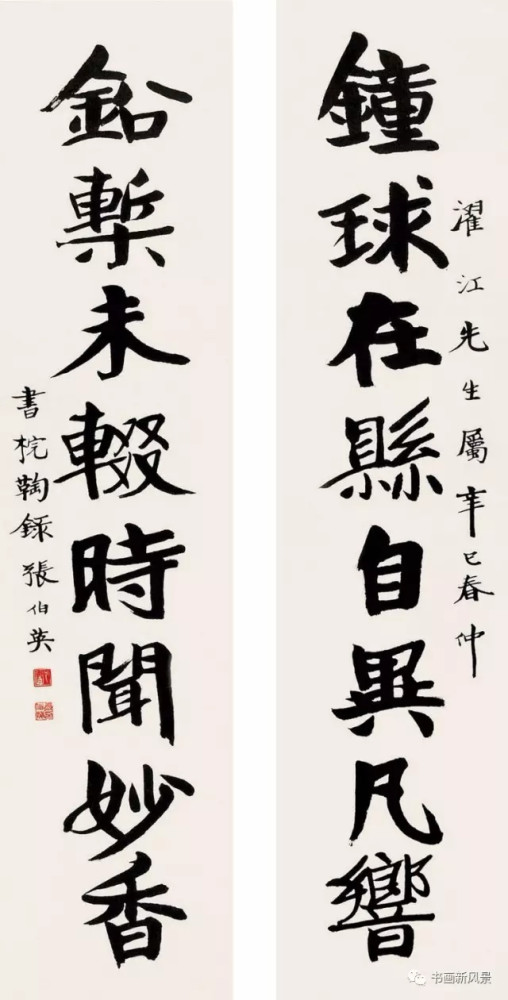 鐘球在縣自異凡響
濯江先生屬辛巳春仲
鉛槧未輟時聞妙香
書梡鞠錄張伯英
书画新风景